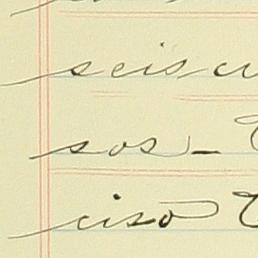 seis cu
sos-
ciso